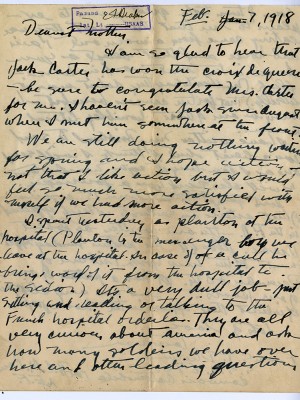 Feb. Jan 7, 1918
Dearest Mother
I am so glad to hear that
Jack Carter has won the croix de guerre
- be sure to congratulate Mrs. Carter
for me. I havent seen Jack since August
when I met him somewhere at the front.
We are still doing nothing
for spring and I hope action -
not that I like action but I would
feel so much more satisfied with
myself if we had more action.
I spent yesterday as planton at the
hospital (Planton is the messenger boy we
leave at the hospital. In case of a call he
brings word of it from the hospital to
the Section). Its a very dull job - just
sitting and reading or talking to the
French hospital orderlies. They are all
very curious about America and ask
how many soldiers we have over
here and other leading questions